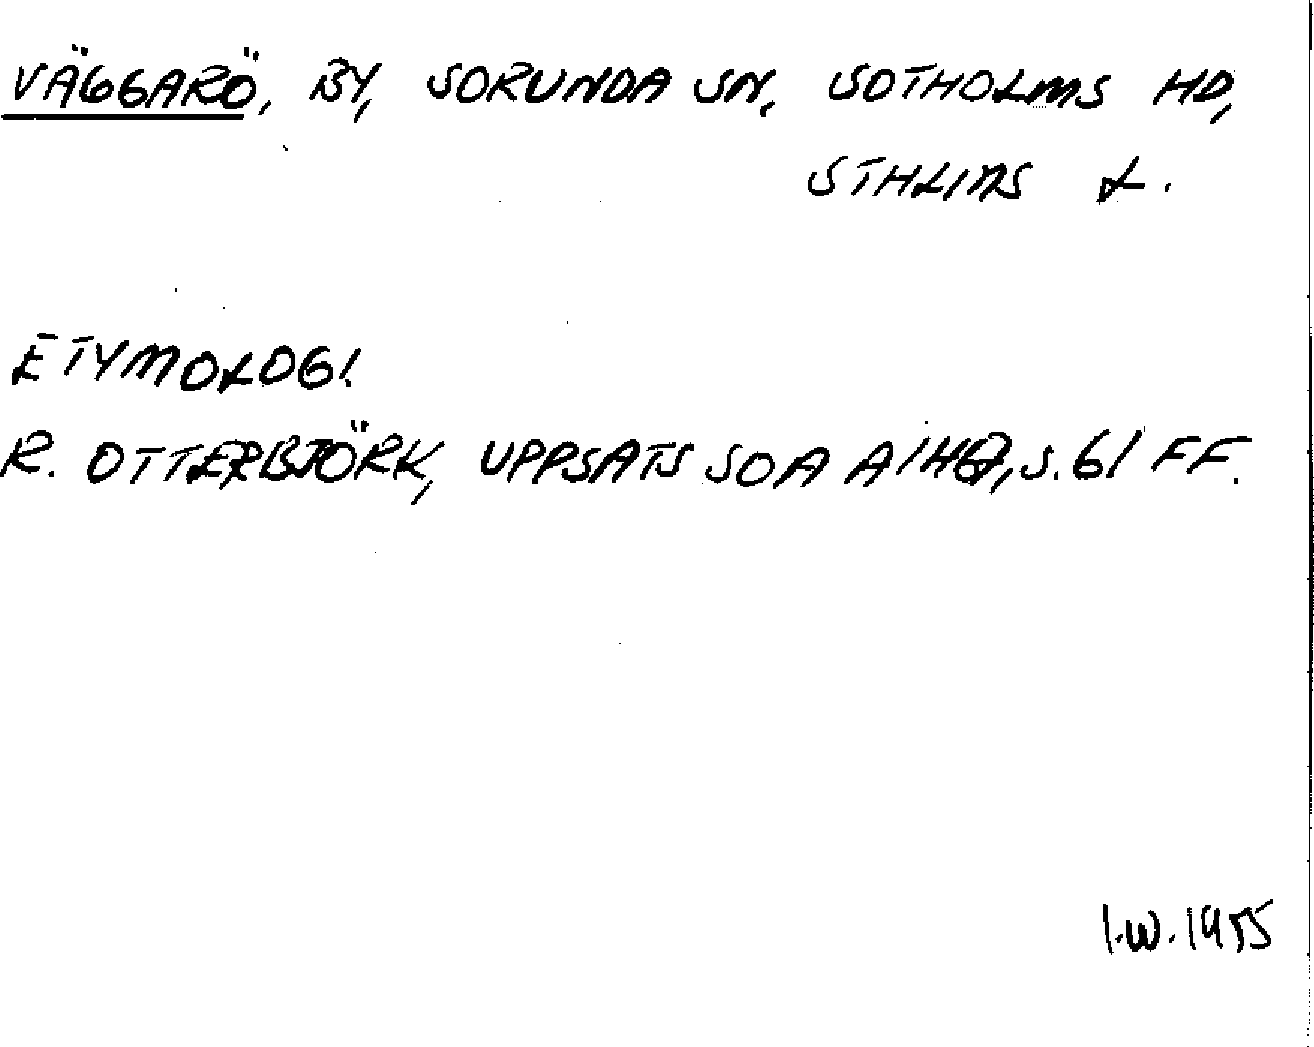 VÄGGARÖ, BY, SORUNDA SN, SOTHOLMS HD,
STHLMS L.
ETYMOLOGI.
R. OTTERBJÖRK, UPPSATS SOA A 1467, S. 61 FF.
I.W. 1955